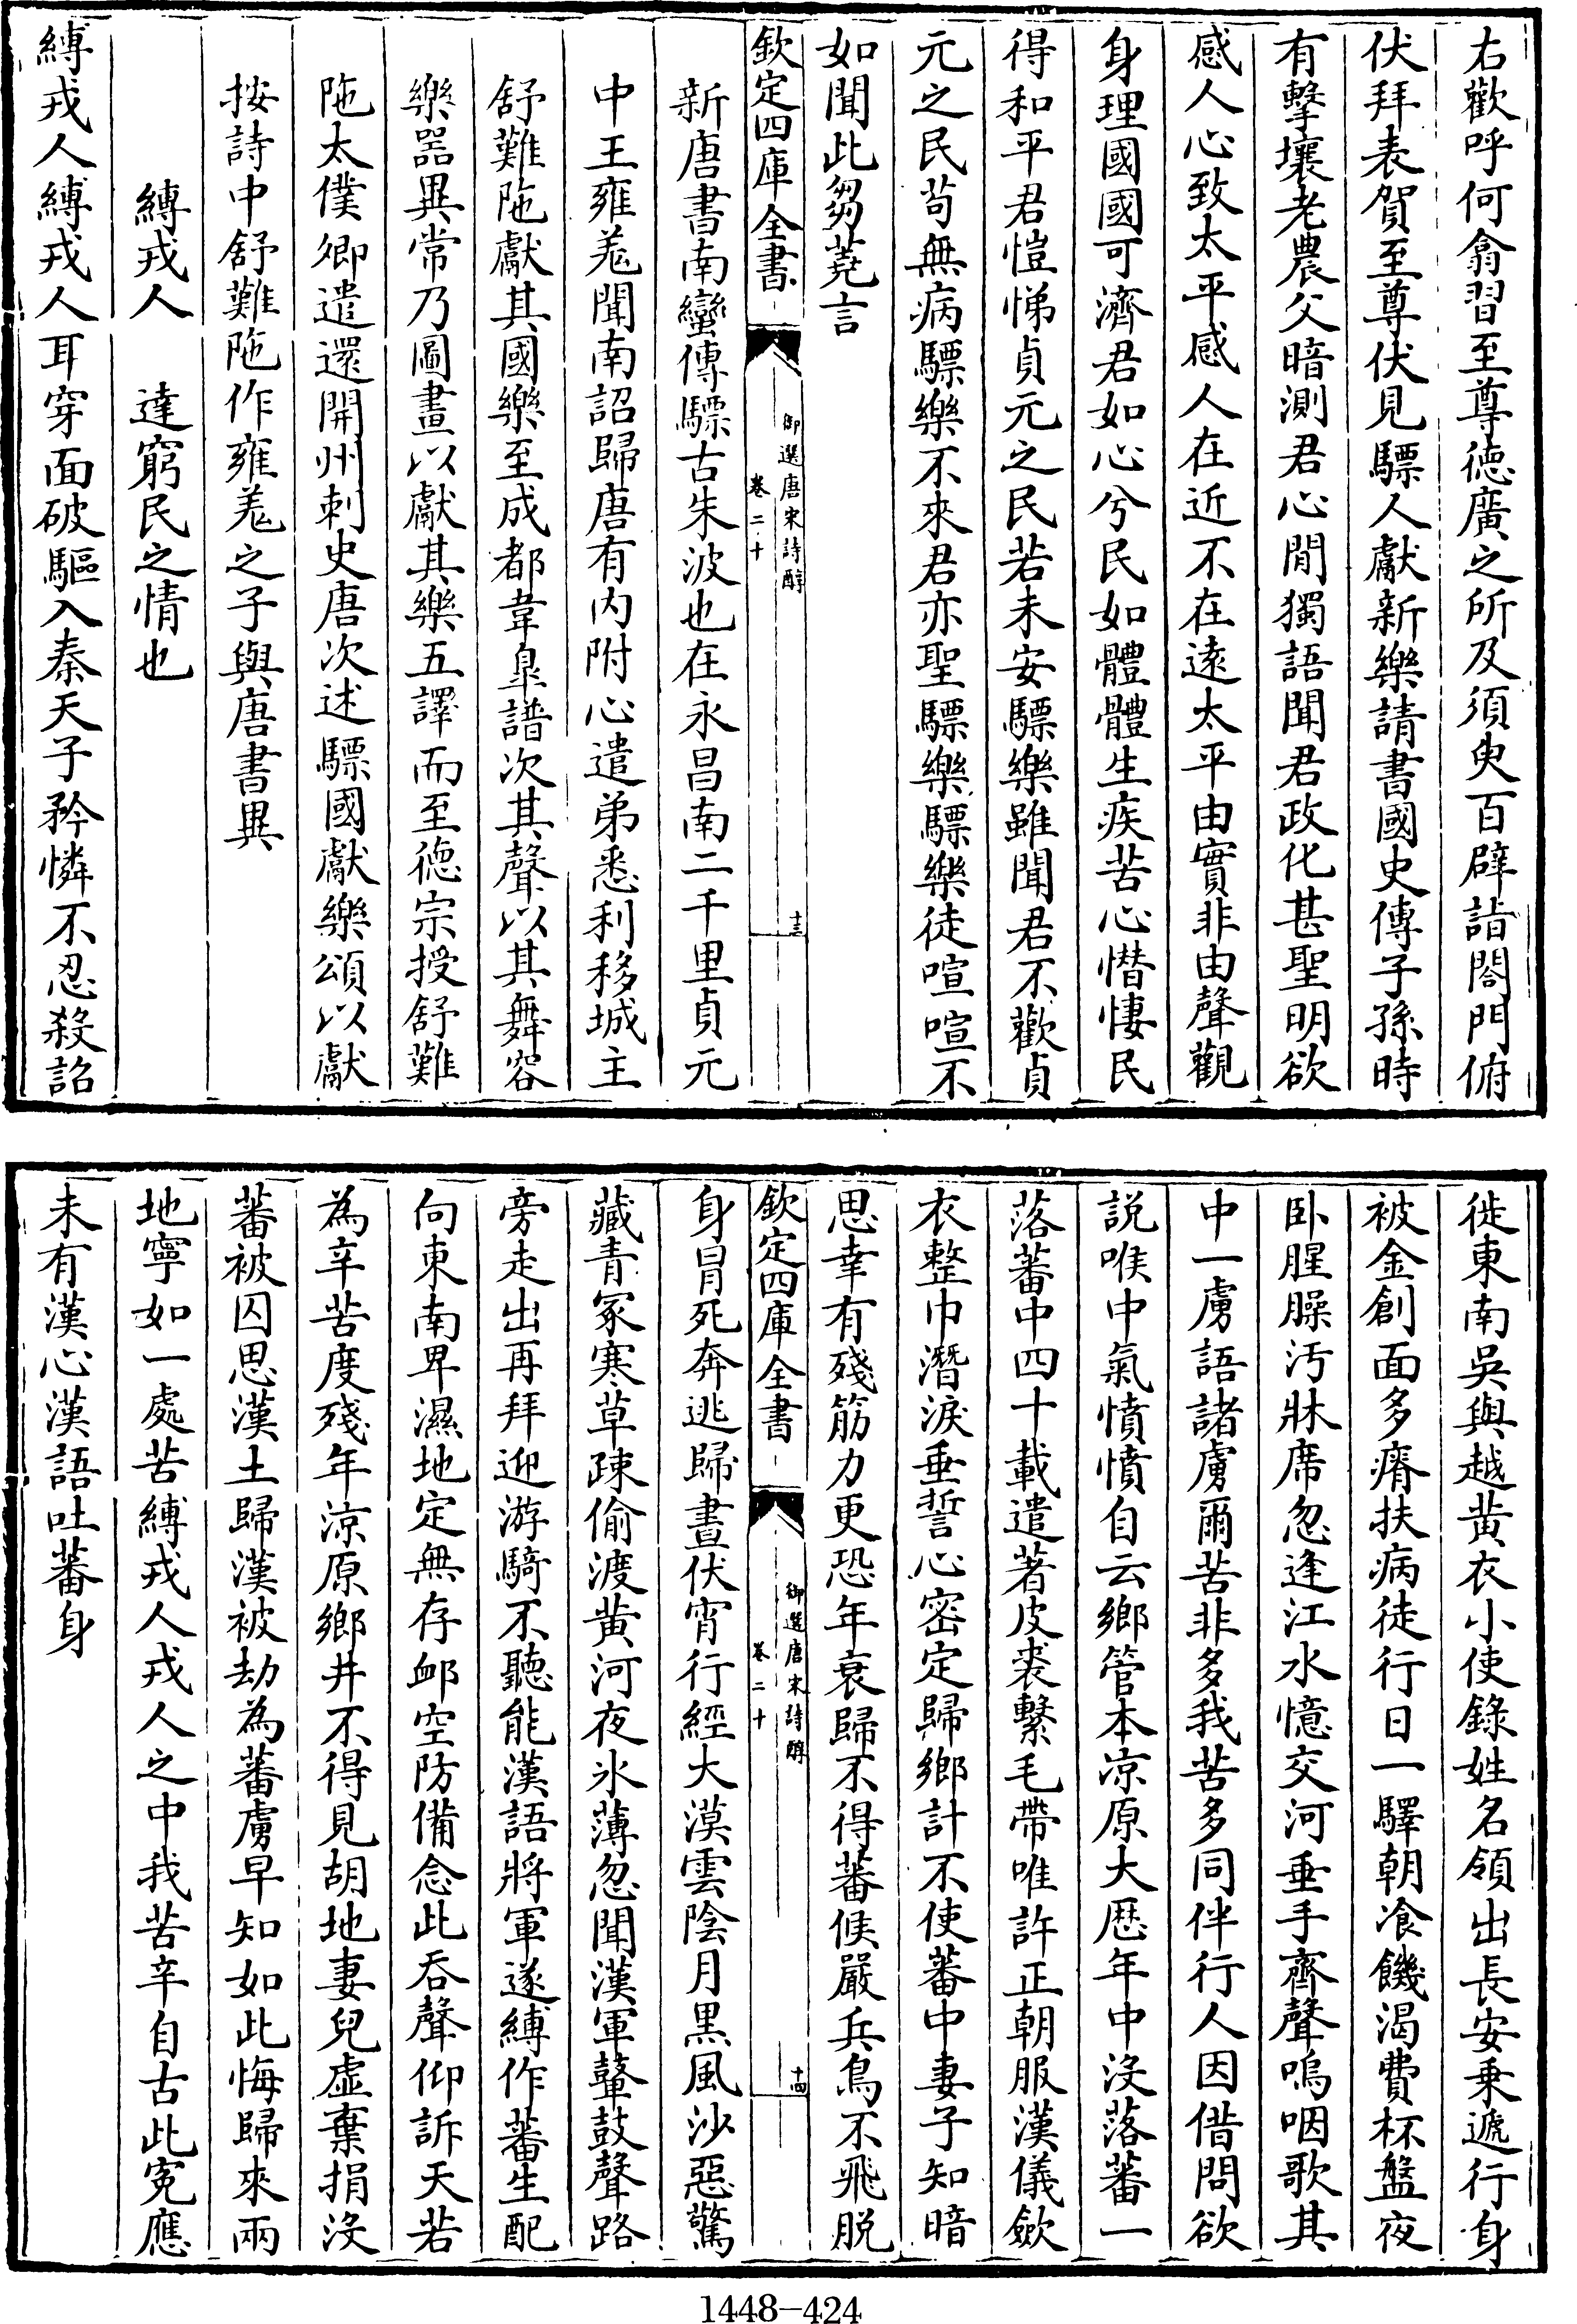 右歡呼何翕習至尊徳廣之所及須臾百辟詣閤門俯
伏拜表賀至尊伏見驃人獻新樂請書國史傳子孫時
有擊壤老農父暗測君心閒獨語聞君政化甚聖明欲
感人心致太平感人在近不在逺太平由實非由聲觀
身理國國可濟君如心兮民如體體生疾苦心憯悽民
得和平君愷悌貞元之民若未安驃樂雖聞君不歡貞
元之民茍無病驃樂不來君亦聖驃樂驃樂徒喧喧不
如聞此芻蕘言
欽定四庫全書
御選唐宋詩醇
卷二十
十三
新唐書南蠻傳驃古朱波也在永昌南二千里貞元
中王雍羗聞南詔歸唐有内附心遣弟悉利移城主
舒難陁獻其國樂至成都韋臯譜次其聲以其舞容
樂器異常乃圖畫以獻其樂五譯而至徳宗授舒難
陁太僕卿遣還開州刺史唐次述驃國獻樂頌以獻
按詩中舒難陁作雍羗之子與唐書異
縛戎人　達窮民之情也
縛戎人縛戎人耳穿面破驅入秦天子矜憐不忍殺詔
徙東南吳與越黄衣小使錄姓名領出長安乗遞行身
被金創面多瘠扶病徒行日一驛朝飡饑渴費杯盤夜
卧腥臊汚牀席忽逢江水憶交河垂手齊聲嗚咽歌其
中一虜語諸虜爾苦非多我苦多同伴行人因借問欲
說喉中氣憤憤自云鄉管本凉原大厯年中沒落蕃一
落蕃中四十載遣著皮裘繫毛帶唯許正朝服漢儀斂
衣整巾潛淚垂誓心密定歸鄉計不使蕃中妻子知暗
思幸有殘筋力更恐年衰歸不得蕃候嚴兵鳥不飛脱
欽定四庫全書
御選唐宋詩醇
卷二十
十四
身冒死奔逃歸晝伏宵行經大漠雲陰月黒風沙惡驚
藏青冢寒草疎偷渡黄河夜氷薄忽聞漢軍鼙鼓聲路
旁走出再拜迎游騎不聽能漢語將軍遂縛作蕃生配
向東南卑濕地定無存䘏空防備念此吞聲仰訴天若
為辛苦度殘年涼原鄉井不得見胡地妻兒虚棄捐沒
蕃被囚思漢土歸漢被劫為蕃虜早知如此悔歸來兩
地寧如一處苦縛戎人戎人之中我苦辛自古此寃應
未有漢心漢語吐蕃身
1448-424